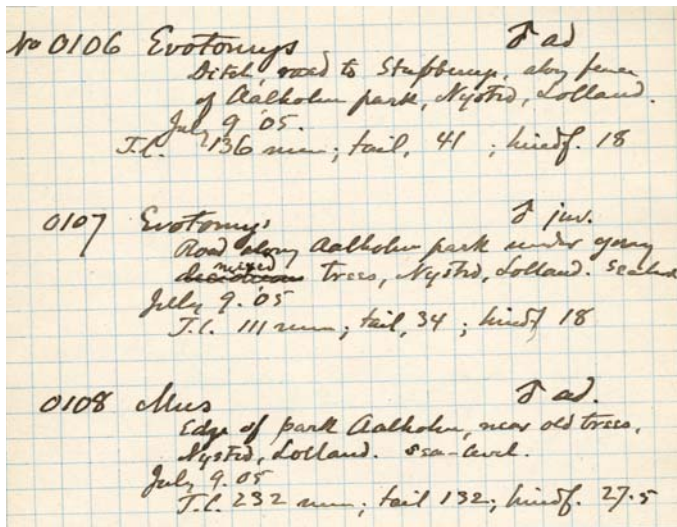 No 0106 Evotomys ♂ ad
Ditch, road to Stubberup, along fence
of Aalholm park, Nysted, Lolland.
July 9 '05.
T.L. 136 mm; tail, 41 ; hindf. 18
0107 Evotomys ♂ juv.
Road along Aalholm park under young
mixed
deciduous trees, Nysted, Lolland. Sealevel
July 9. '05
T.L. 111 mm; tail, 34 ; hindf 18
0108 Mus ♂ ad.
Edge of park Aalholm, near old trees,
Nysted, Lolland. Sea-level.
July 9. 05
T.L. 232 mm; tail 132; hindf. 27.5